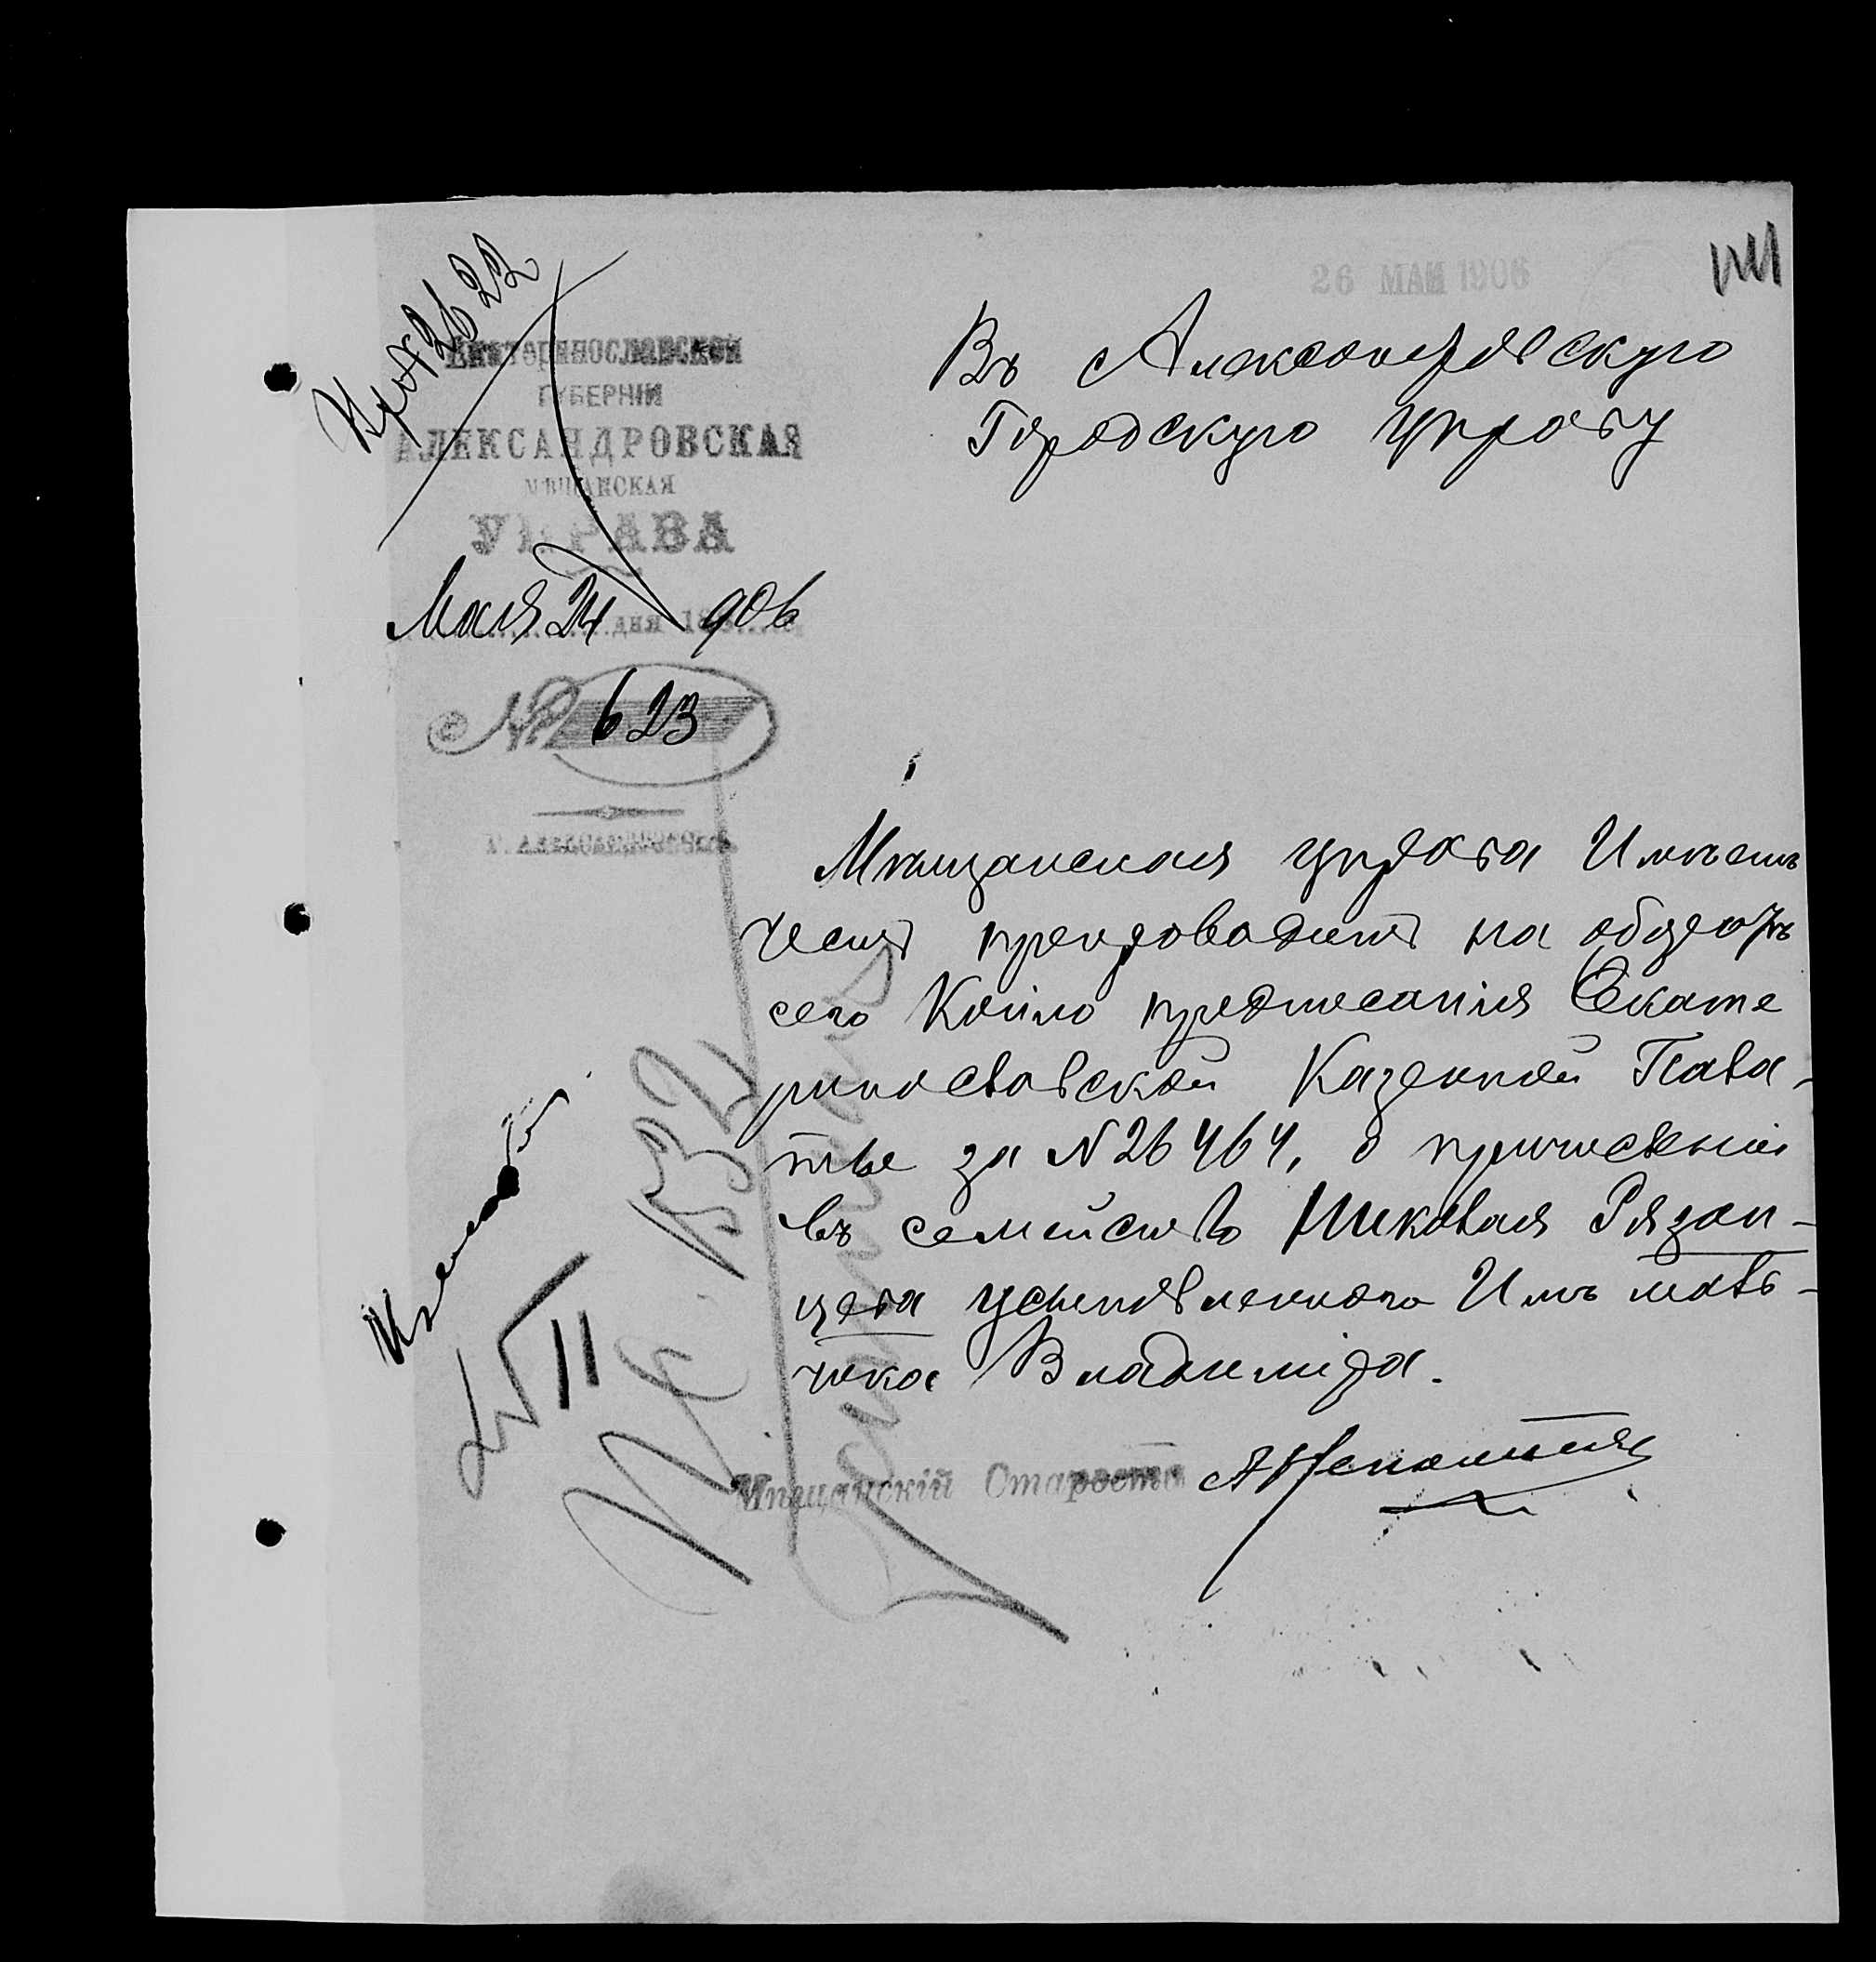 26 МАЯ 1906
Екатеринославской
ГУБЕРНІИ
АЛЕКСАНДРОВСКАЯ
МѢЩАНСКАЯ
УПРАВА
Мая 24 дня 1906
№ 623
Г. Александровскъ
Въ Александровскую
Городскую Управу
Мѣщанская управа Имѣетъ
честь препроводить на оборотѣ
сего Копію предписанія Екате
ринославской Казенной Пала-
ты за № 26464, о причисленіи
въ семейство Николая Рязан-
цева усыновленного Имъ маль-
чика Владиміра.
Мѣщанскій Староста